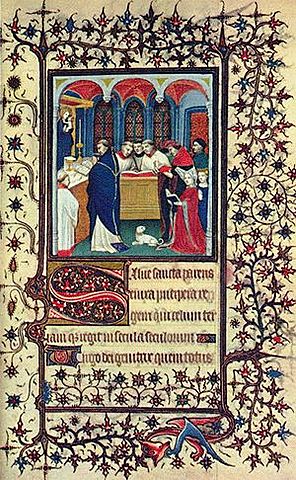 Salve sancta parens
enixa puerpera re
gem qui celum ter
ram que regit in secula seculorum
Virgo dei genitrix quem totus